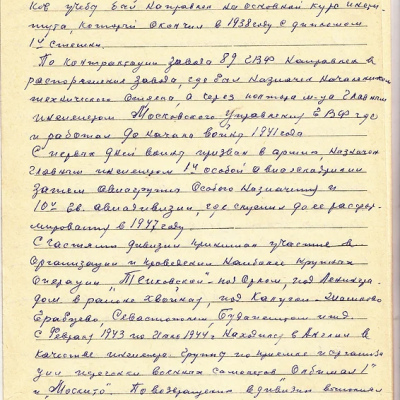 учебу был направлен на основной курс инсти-
тута, который окончил в 1938 году с дипломом
1й степени.
По контрактации завода 89 ГВФ направлен в
распоряжение завода, где был назначен начальником
технического отдела, а через полтора м-ца главным
инженером Московского Управления ГВФ где
и работал до начала войны 1941 года
С первых дней войны призван в армию, назначен
главным инженером 1й особой авиаэскадрилии
затем авиагруппы Особого Назначения и
10й Гв. авиадивизии, где служил до ее расфор-
мирования в 1947 году
С частями дивизии принимал участие в
организации и проведении наиболее крупных
операций под Орлом, под Ленингра-
дом в районе Хвойная, под
Севастополем, Будапештом и т.д.
С февраля 1943 по 1944 г. находился в Англии в
качестве инженера группы по приемке и организа-
ции перегонки военных самолетов "Албимал 1"
и "Москито". По возвращении в дивизию